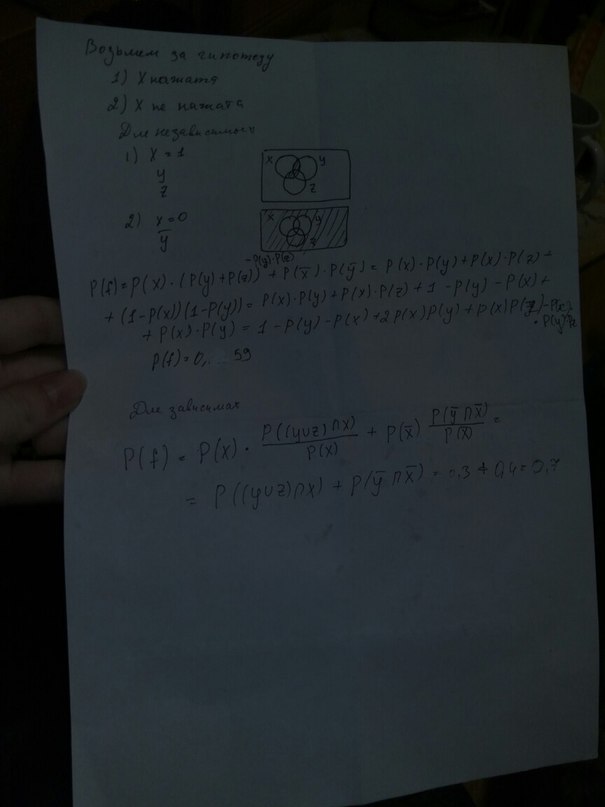 Возьмем за гипотезу
1) X нажата
2) X не нажата
Для независимых
1) x = 1
y
z
x y
z
2) x = 0
y̅
x y
z
- P(y)·P(z)
P(f) = P(x) · (P(y) + P(z)) + P(x̅) · P(y̅) = P(x) · P(y) + P(x) · P(z) +
+ (1 - P(x))(1 - P(y)) = P(x) · P(y) + P(x) · P(z) + 1 - P(y) - P(x) +
+ P(x) · P(y) = 1 - P(y) - P(x) + 2P(x)P(y) + P(x)P(z) - P(x)
· P(y)Pz
P(f) = 0, ... 59
Для зависимых
P(f) = P(x) · P((y∪z)∩x) / P(x) + P(x̅) P(y̅∩x̅) / P(x̅) =
= P((y∪z)∩x) + P(y̅∩x̅) = 0,3 + 0,4 = 0,7